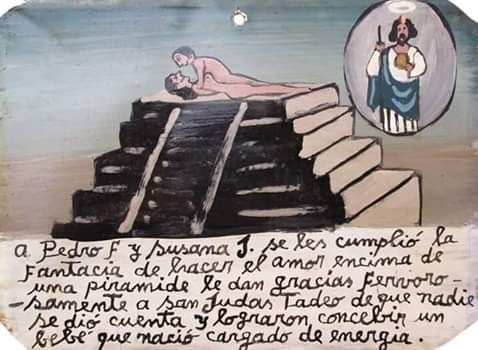 a Pedro F. y Susana J. se les cumplió la
Fantacia de hacer el amor encima de
una piramide le dan gracias fervoro-
-samente a san Judas Tadeo de que nadie
se dió cuenta y lograron concebir un
bebé que nació cargado de energía.